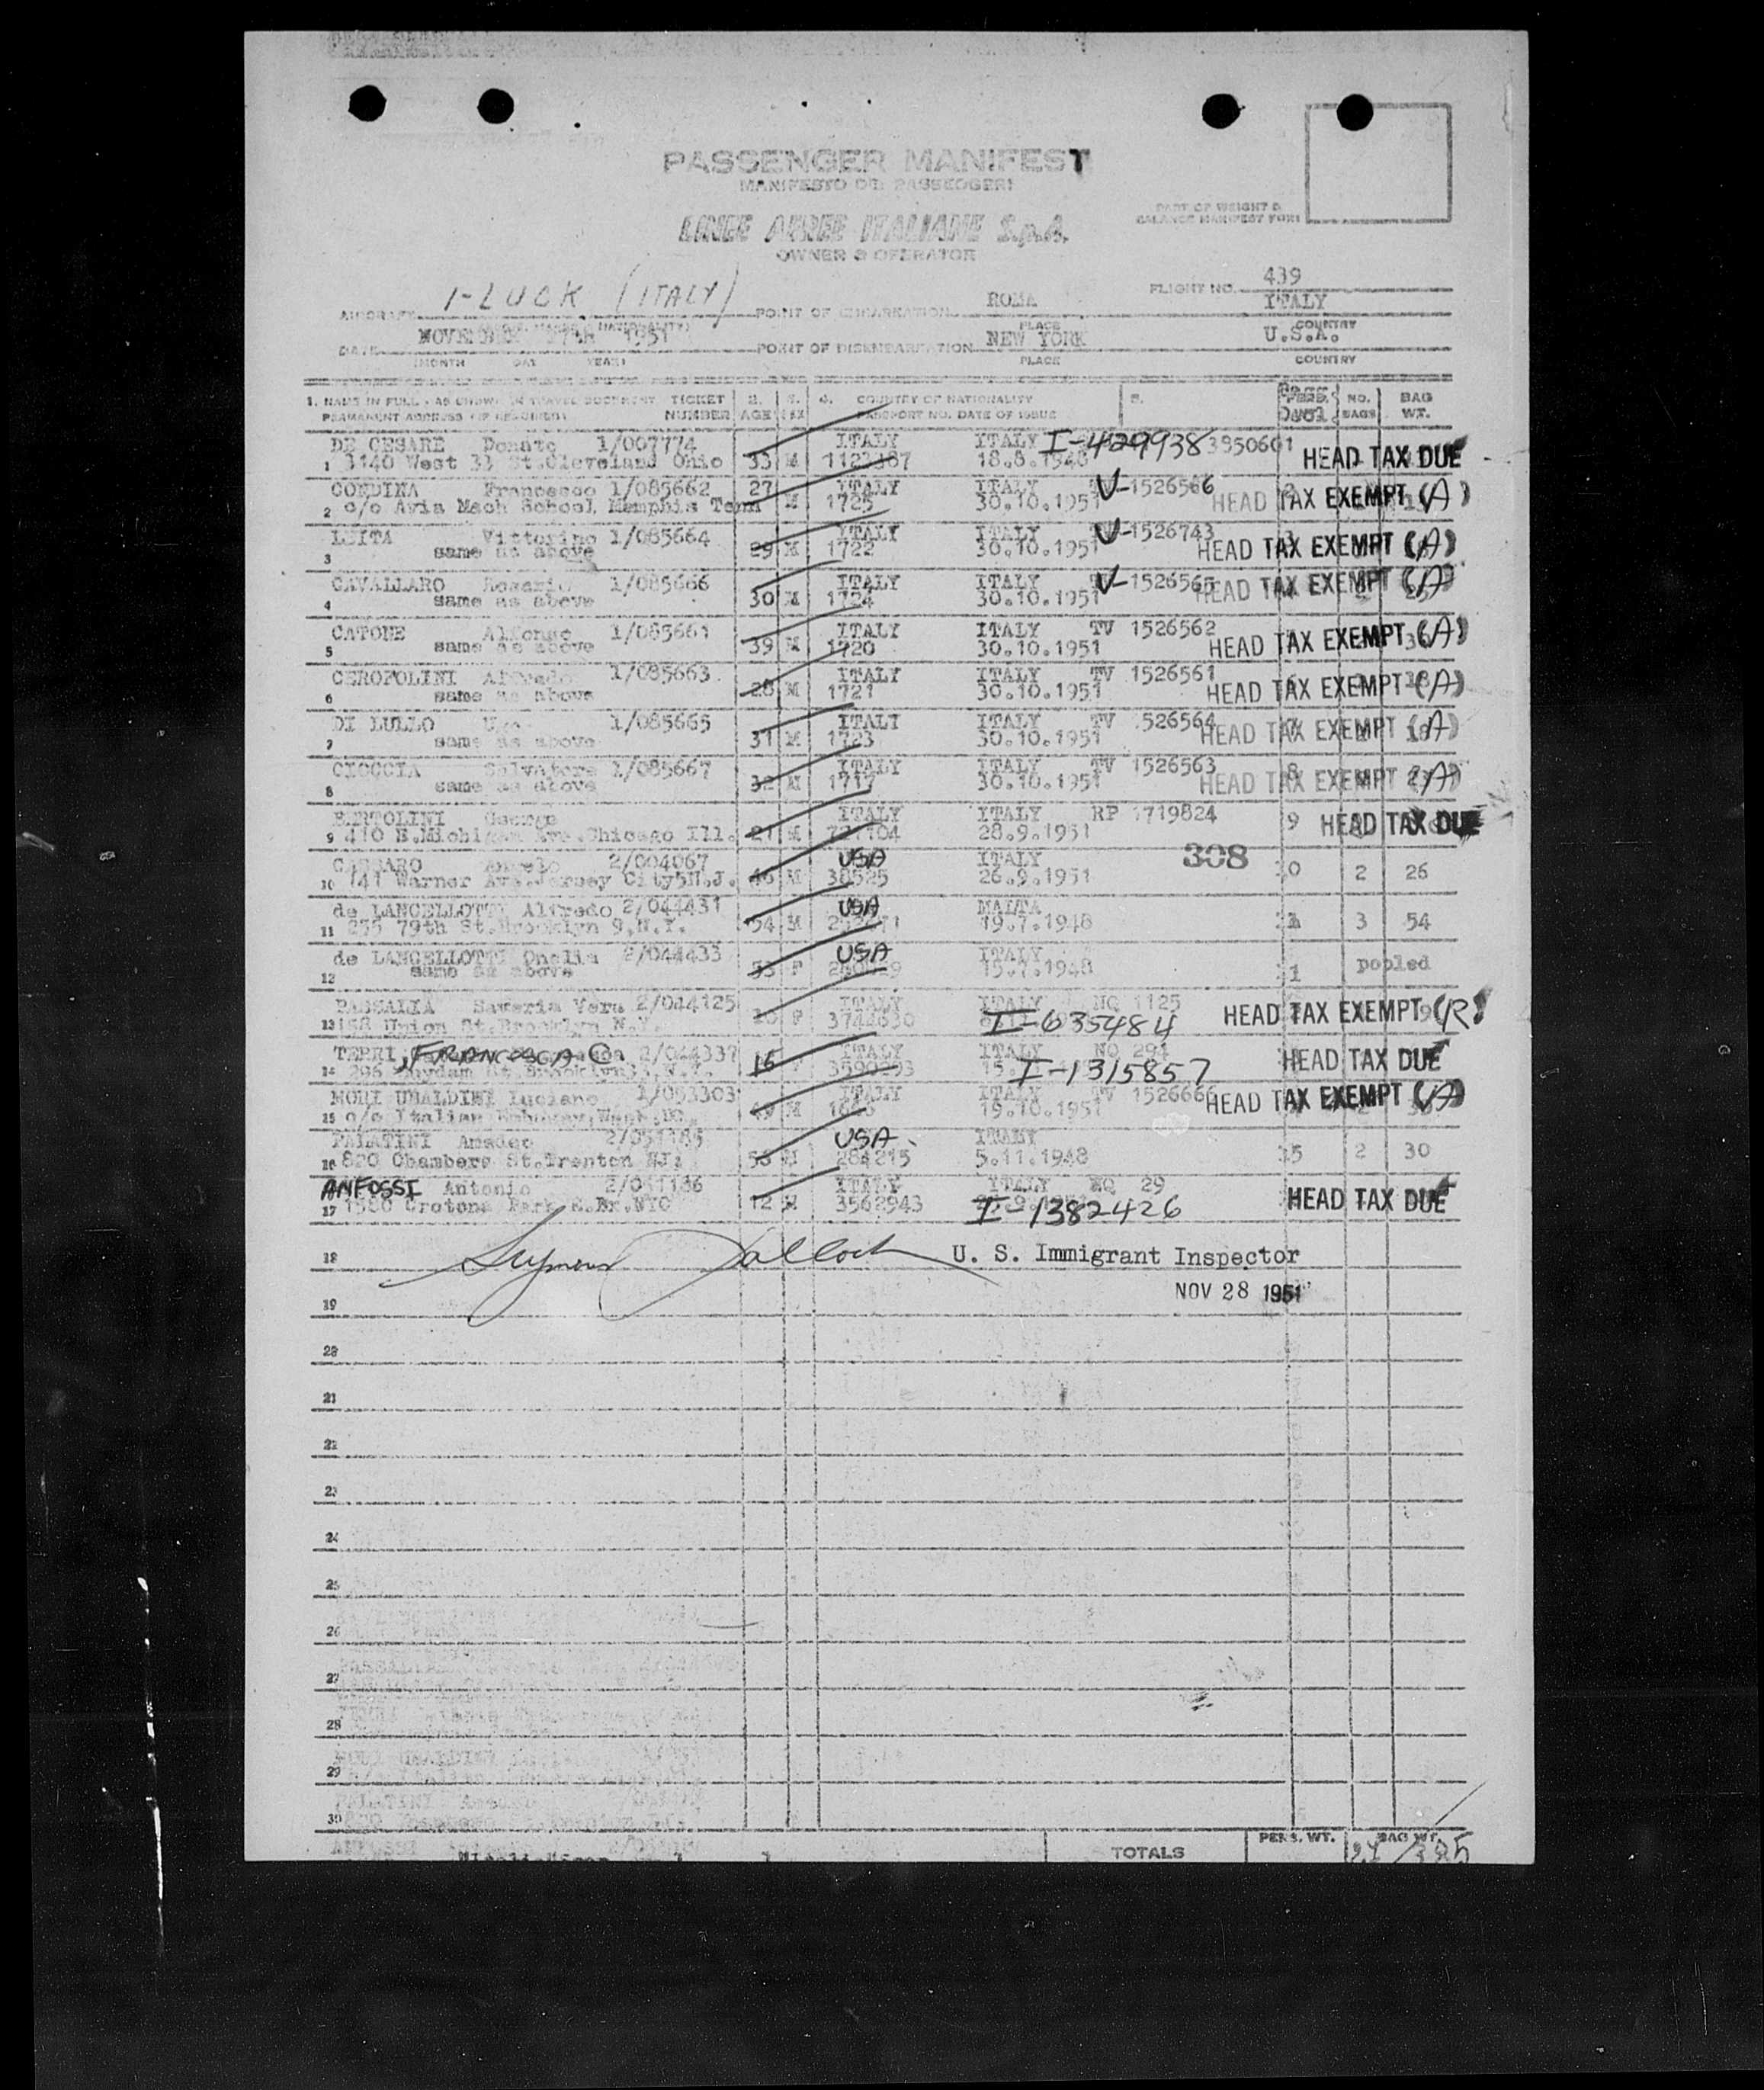 PASSENGER MANIFEST
MANIFESTO DEI PASSEGGERI
PART OF WEIGHT &
BALANCE MANIFEST FORM
LINEE AEREE ITALIANE S.p.A.
OWNER & OPERATOR
AIRCRAFT I-LUCK (ITALY) POINT OF EMBARKATION ROMA FLIGHT NO. 439
ITALY
PLACE COUNTRY
DATE NOVEMBER 1951 POINT OF DISEMBARKATION NEW YORK U.S.A.
MONTH DAY YEAR PLACE COUNTRY
1. NAME IN FULL - AS SHOWN IN TRAVEL DOCUMENT TICKET 2. 3. 4. COUNTRY OF NATIONALITY 5. NO. BAG
PERMANENT ADDRESS NUMBER AGE SEX PASSPORT NO. DATE OF ISSUE BAGS WT.
DE CESARE Donato 1/007774 ITALY ITALY I-429938 3950601 HEAD TAX DUE
1 3140 West 33 St.Cleveland Ohio 33 M 1123487 18.8.1948
CONDINA Francesco 1/085662 27 ITALY ITALY V-1526566 HEAD TAX EXEMPT (A)
2 c/o Avia Mach School Memphis Tenn M 1725 30.10.1951
LEITA Vittorino 1/085664 ITALY ITALY V-1526743 HEAD TAX EXEMPT (A)
3 same as above 29 M 1722 30.10.1951
CAVALLARO Rosario 1/085666 ITALY ITALY V-1526565 HEAD TAX EXEMPT (A)
4 same as above 30 M 1724 30.10.1951
CATONE Alfonso 1/085661 ITALY ITALY TV 1526562 HEAD TAX EXEMPT (A)
5 same as above 39 M 1720 30.10.1951
CEROFOLINI 1/085663 ITALY ITALY TV 1526561 HEAD TAX EXEMPT (A)
6 same as above 28 M 1721 30.10.1951
DI LULLO Ugo 1/085665 ITALY ITALY TV 526564 HEAD TAX EXEMPT (A)
7 same as above 31 M 1723 30.10.1951
CIOCCIA Salvatore 1/085667 ITALY ITALY TV 1526563 8 HEAD TAX EXEMPT (A)
8 same as above 32 M 1717 30.10.1951
BERTOLINI ITALY ITALY RP 1719824 9 HEAD TAX DUE
9 410 E.Michigan Ave.Chicago Ill. 27 M 28.9.1951
Angelo 2/004067 USA ITALY 308
10 741 Warner Ave.Jersey City5N.J. 46 M 38525 26.9.1951 2 26
de LANCELLOTTI Alfredo 2/044431 USA MALTA
11 235 79th St.Brooklyn 9,N.Y. 54 M 19.7.1948 3 54
de LANCELLOTTI Onelia 2/044433 USA ITALY
12 same as above 33 F 15.7.1948 pooled
PASSALIA Saveria Vera 2/044125 ITALY ITALY NQ 1125 HEAD TAX EXEMPT (R)
13 Union St.Brooklyn N.Y. F I-635484
TERRI, FRANCESCA C 2/044337 ITALY ITALY NQ 294 HEAD TAX DUE
14 296 St.Brooklyn N.Y. 16 I-1315857
MORI UBALDINI Luciano 1/053303 ITALY ITALY TV 1526666 HEAD TAX EXEMPT (A)
15 c/o Italian Embassy,Wash.DC. M 19.10.1951
PALATINI Amadeo USA ITALY
16 820 Chambers St.Trenton NJ. M 284215 5.11.1948 15 2 30
ANFOSSI Antonio ITALY ITALY NQ 29 HEAD TAX DUE
17 1580 Crotona Park E.Br.NYC 12 M 3562943 I-1382426
18 Seymour U. S. Immigrant Inspector
NOV 28 1951
19
20
21
22
23
24
25
26
27
28
29
30
TOTALS PERS. WT. BAG WT.